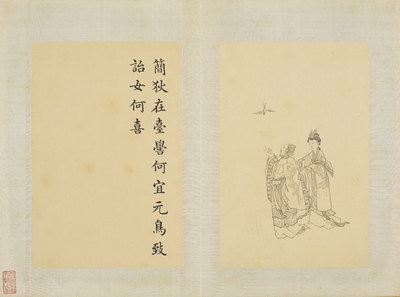 簡狄在臺嚳何宜元鳥致
詒女何喜